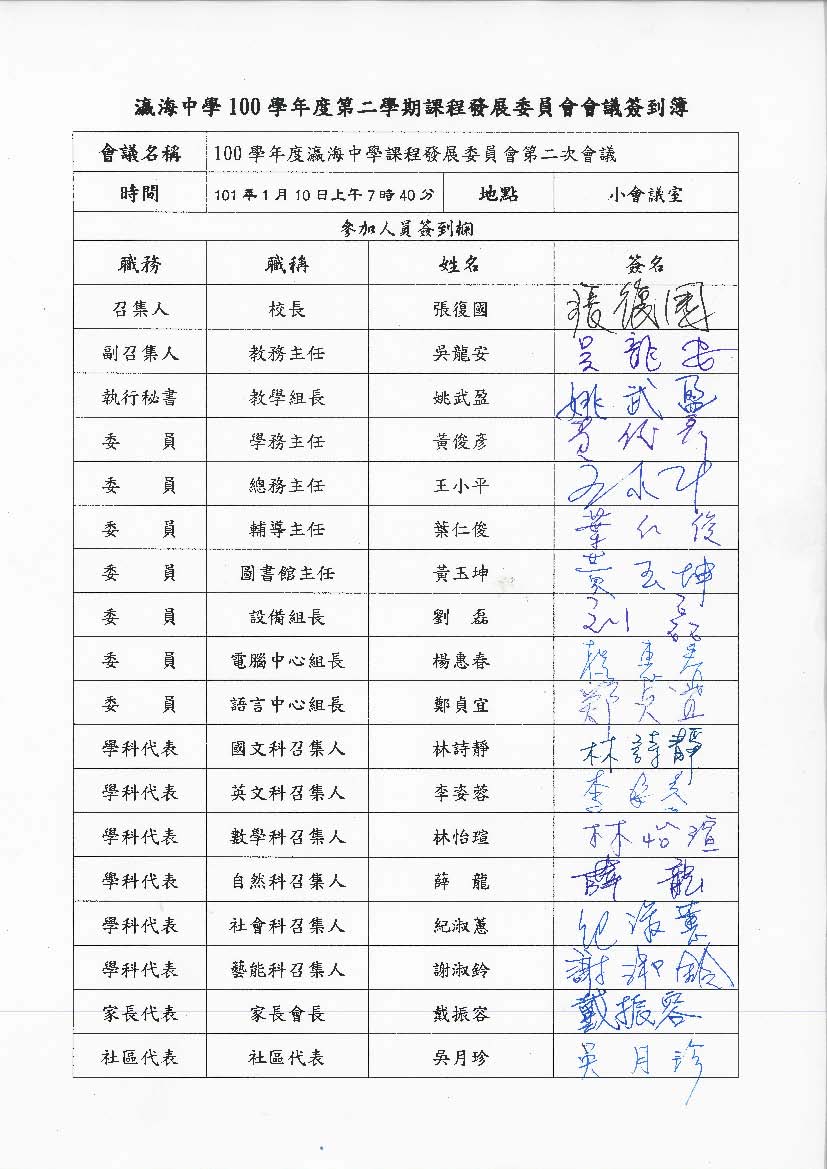 瀛海中學 100 學年度第二學期課程發展委員會會議簽到簿
會議名稱 100 學年度瀛海中學課程發展委員會第二次會議
時間 101 年 1 月 10 日上午 7 時 40 分 地點 小會議室
參加人員簽到欄
職務 職稱 姓名 簽名
召集人 校長 張復國 張復國
副召集人 教務主任 吳龍安 吳龍安
執行秘書 教學組長 姚武盈 姚武盈
委 員 學務主任 黃俊彥 黃俊彥
委 員 總務主任 王小平 王小平
委 員 輔導主任 葉仁俊 葉仁俊
委 員 圖書館主任 黃玉坤 黃玉坤
委 員 設備組長 劉 磊 刘磊
委 員 電腦中心組長 楊惠春 楊惠春
委 員 語言中心組長 鄭貞宜 鄭貞宜
學科代表 國文科召集人 林詩靜 林詩靜
學科代表 英文科召集人 李姿蓉 李姿蓉
學科代表 數學科召集人 林怡瑄 林怡瑄
學科代表 自然科召集人 薛 龍 薛龍
學科代表 社會科召集人 紀淑蕙 紀淑蕙
學科代表 藝能科召集人 謝淑鈴 謝淑鈴
家長代表 家長會長 戴振容 戴振容
社區代表 社區代表 吳月珍 吳月珍